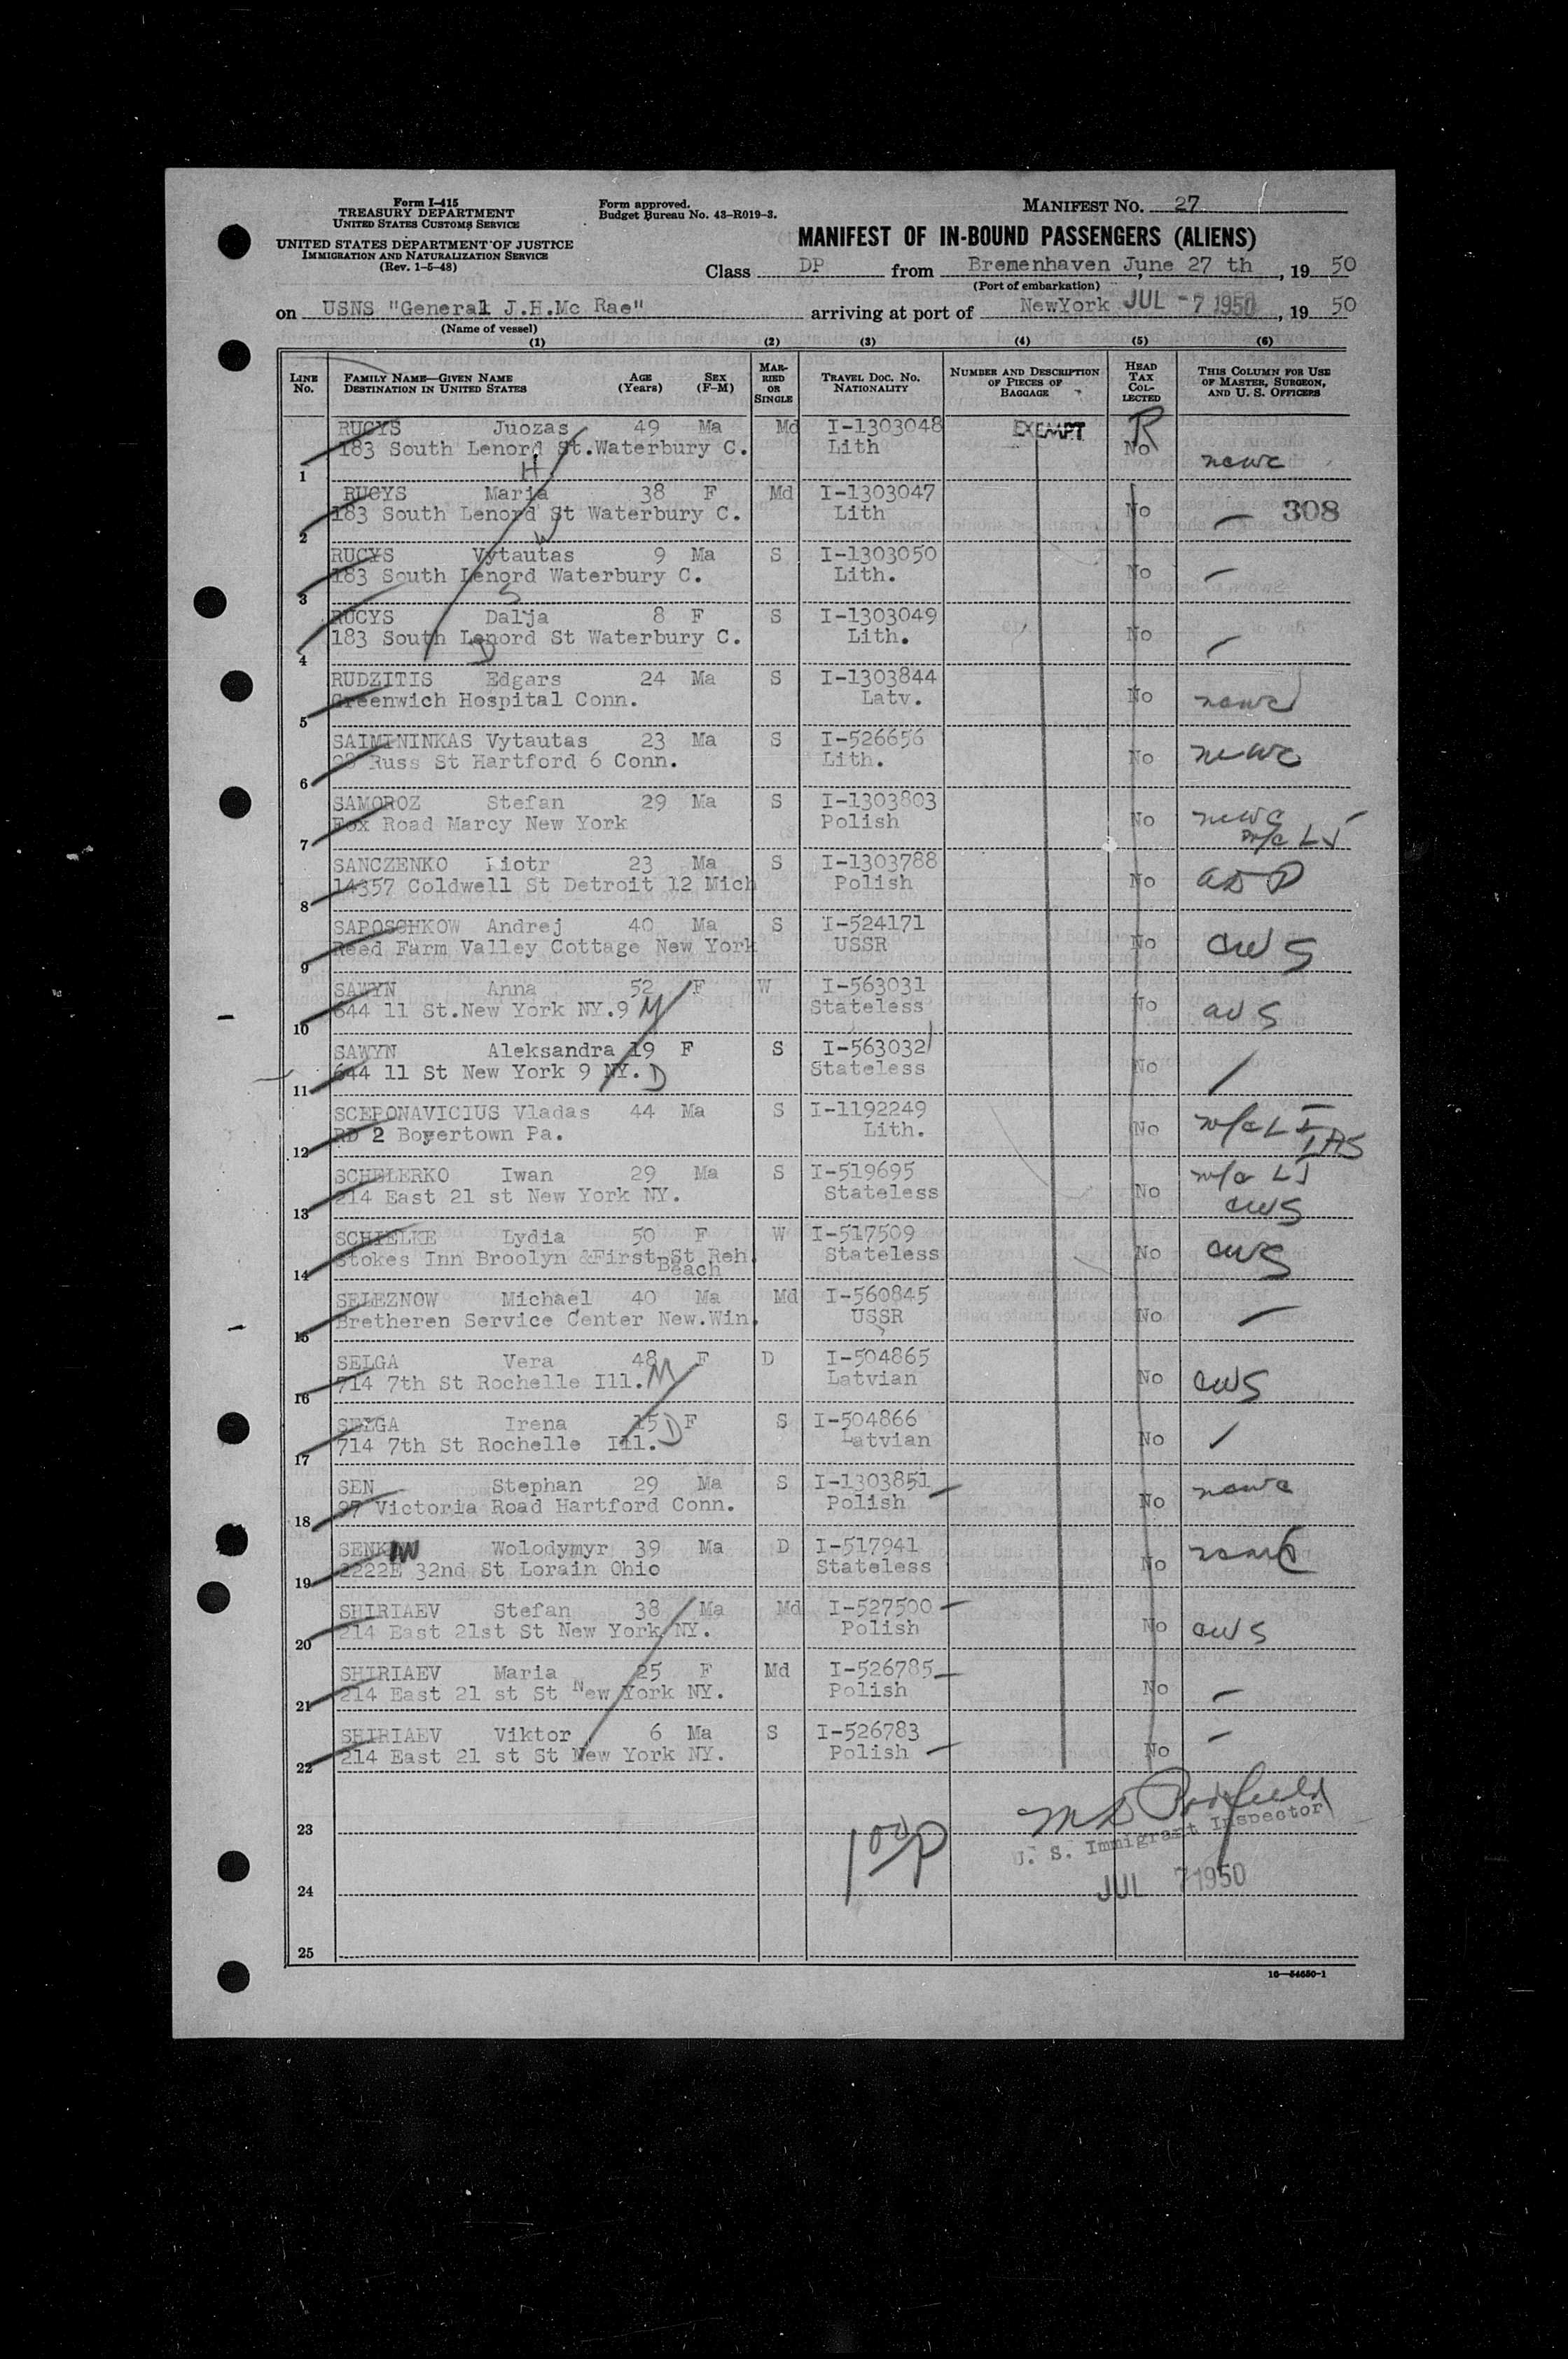 Form I-415
TREASURY DEPARTMENT
UNITED STATES CUSTOMS SERVICE
UNITED STATES DEPARTMENT OF JUSTICE
IMMIGRATION AND NATURALIZATION SERVICE
(Rev. 1-5-48)
Form approved.
Budget Bureau No. 43-R019-3.
MANIFEST NO. 27
MANIFEST OF IN-BOUND PASSENGERS (ALIENS)
Class DP from Bremenhaven June 27 th, 19 50
(Port of embarkation)
on USNS "General J.H.Mc Rae" arriving at port of NewYork JUL -7 1950, 19 50
(Name of vessel)
(1) (2) (3) (4) (5) (6)
LINE No. FAMILY NAME—GIVEN NAME DESTINATION IN UNITED STATES AGE (Years) SEX (F-M) MARRIED OR SINGLE TRAVEL DOC. NO. NATIONALITY NUMBER AND DESCRIPTION OF PIECES OF BAGGAGE HEAD TAX COLLECTED THIS COLUMN FOR USE OF MASTER, SURGEON, AND U. S. OFFICERS
RUCYS Juozas 49 Ma Md I-1303048 EXEMPT R
183 South Lenord St.Waterbury C. Lith No
1 H ncwc
RUCYS Marja 38 F Md I-1303047
183 South Lenord St Waterbury C. Lith No — 308
2 W
RUCYS Vytautas 9 Ma S I-1303050
183 South Lenord Waterbury C. Lith. No —
3 S
RUCYS Dalja 8 F S I-1303049
183 South Lenord St Waterbury C. Lith. No —
4 D
RUDZITIS Edgars 24 Ma S I-1303844
Greenwich Hospital Conn. Latv. No ncwc
5
SAIMININKAS Vytautas 23 Ma S I-526656
Russ St Hartford 6 Conn. Lith. No ncwc
6
SAMOROZ Stefan 29 Ma S I-1303803
Fox Road Marcy New York Polish No ncwc
7
SANCZENKO Piotr 23 Ma S I-1303788
14357 Coldwell St Detroit 12 Mich Polish No
8
SAPOSCHKOW Andrej 40 Ma S I-524171
Reed Farm Valley Cottage New York USSR No cws
9
SAWYN Anna 52 F W I-563031
644 11 St.New York NY.9 M Stateless No cws
10
SAWYN Aleksandra 19 F S I-563032
644 11 St New York 9 NY. D Stateless No /
11
SCEPONAVICIUS Vladas 44 Ma S I-1192249
RD 2 Boyertown Pa. Lith. No
12
SCHELERKO Iwan 29 Ma S I-519695
214 East 21 st New York NY. Stateless No
13 cws
SCHIELKE Lydia 50 F W I-517509
Stokes Inn Broolyn &First St Reh. Stateless No cws
Beach
14
SELEZNOW Michael 40 Ma Md I-560845
Bretheren Service Center New.Win. USSR No —
15
SELGA Vera 48 F D I-504865
714 7th St Rochelle Ill. M Latvian No cws
16
SELGA Irena 15 D F S I-504866
714 7th St Rochelle Ill. Latvian No /
17
SEN Stephan 29 Ma S I-1303851
97 Victoria Road Hartford Conn. Polish — No ncwc
18
SENKIW Wolodymyr 39 Ma D I-517941
2222E 32nd St Lorain Ohio Stateless No ncwc
19
SHIRIAEV Stefan 38 Ma Md I-527500 —
214 East 21st St New York NY. Polish No cws
20
SHIRIAEV Maria 25 F Md I-526785 —
214 East 21 st St New York NY. Polish No —
21
SHIRIAEV Viktor 6 Ma S I-526783
214 East 21 st St New York NY. Polish — No —
22
23
U. S. Immigrant Inspector
24 JUL 7 1950
25
16—54650-1